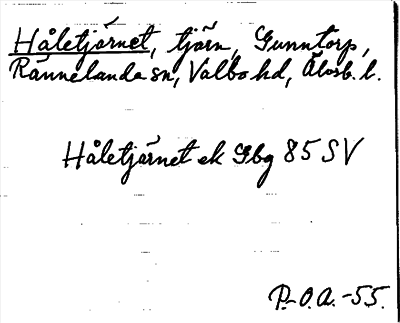 Håletjärnet, tjärn, Gunntorp,
Rännelanda sn, Valbo hd, Älvsb. l.
Håletjärnet ek Gbg 85 SV
P.-O.A. -55.